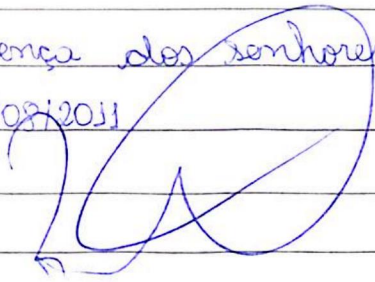 ença dos senhore
08/2011